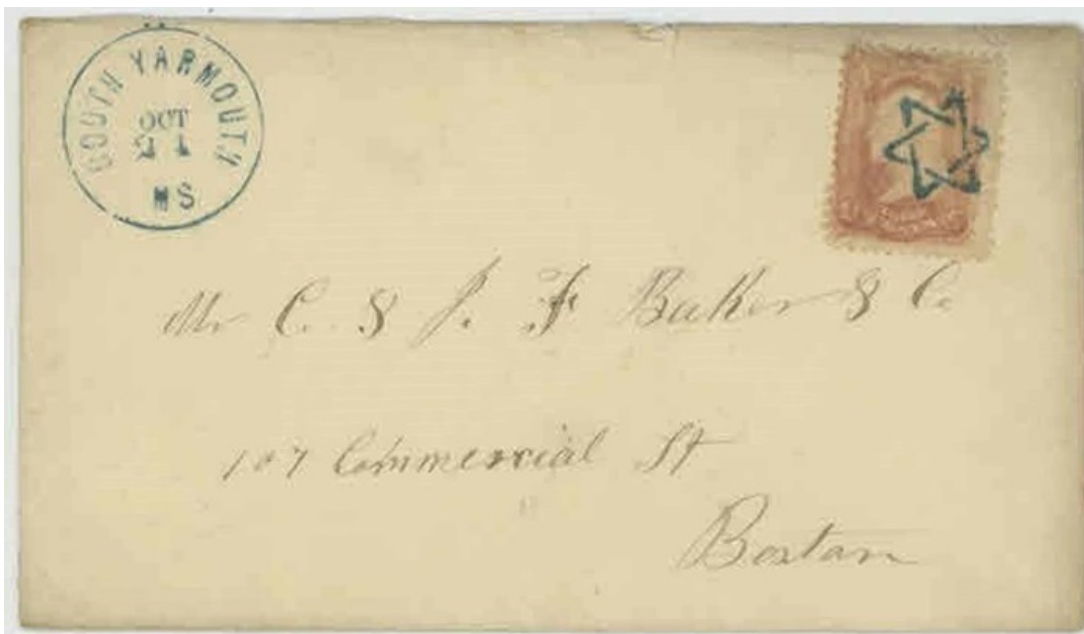 SOUTH YARMOUTH
OCT
21
MS
Mr C. & J. F Baker & Co
107 Commercial St
Boston